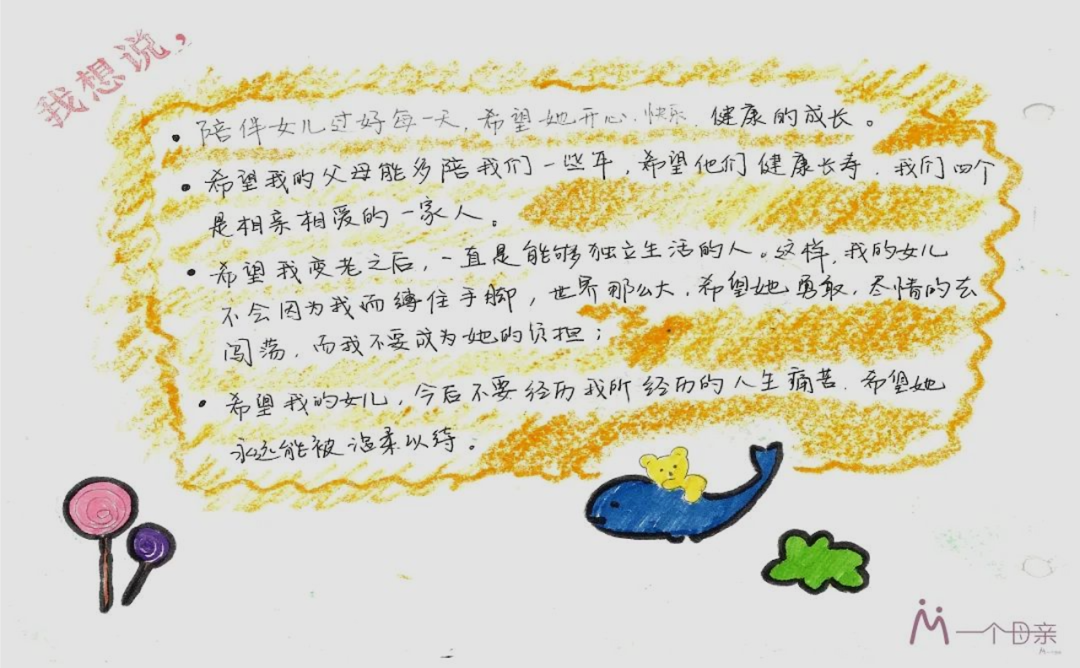 我想说，
• 陪伴女儿过好每一天，希望她开心、快乐、健康的成长。
• 希望我的父母能多陪我们一些年，希望他们健康长寿，我们四个
是相亲相爱的一家人。
• 希望我变老之后，一直是能够独立生活的人。这样，我的女儿
不会因为我而缚住手脚，世界那么大，希望她勇敢，尽情的去
闯荡，而我不要成为她的负担；
• 希望我的女儿，今后不要经历我所经历的人生痛苦，希望她
永远能被温柔以待。
一个母亲